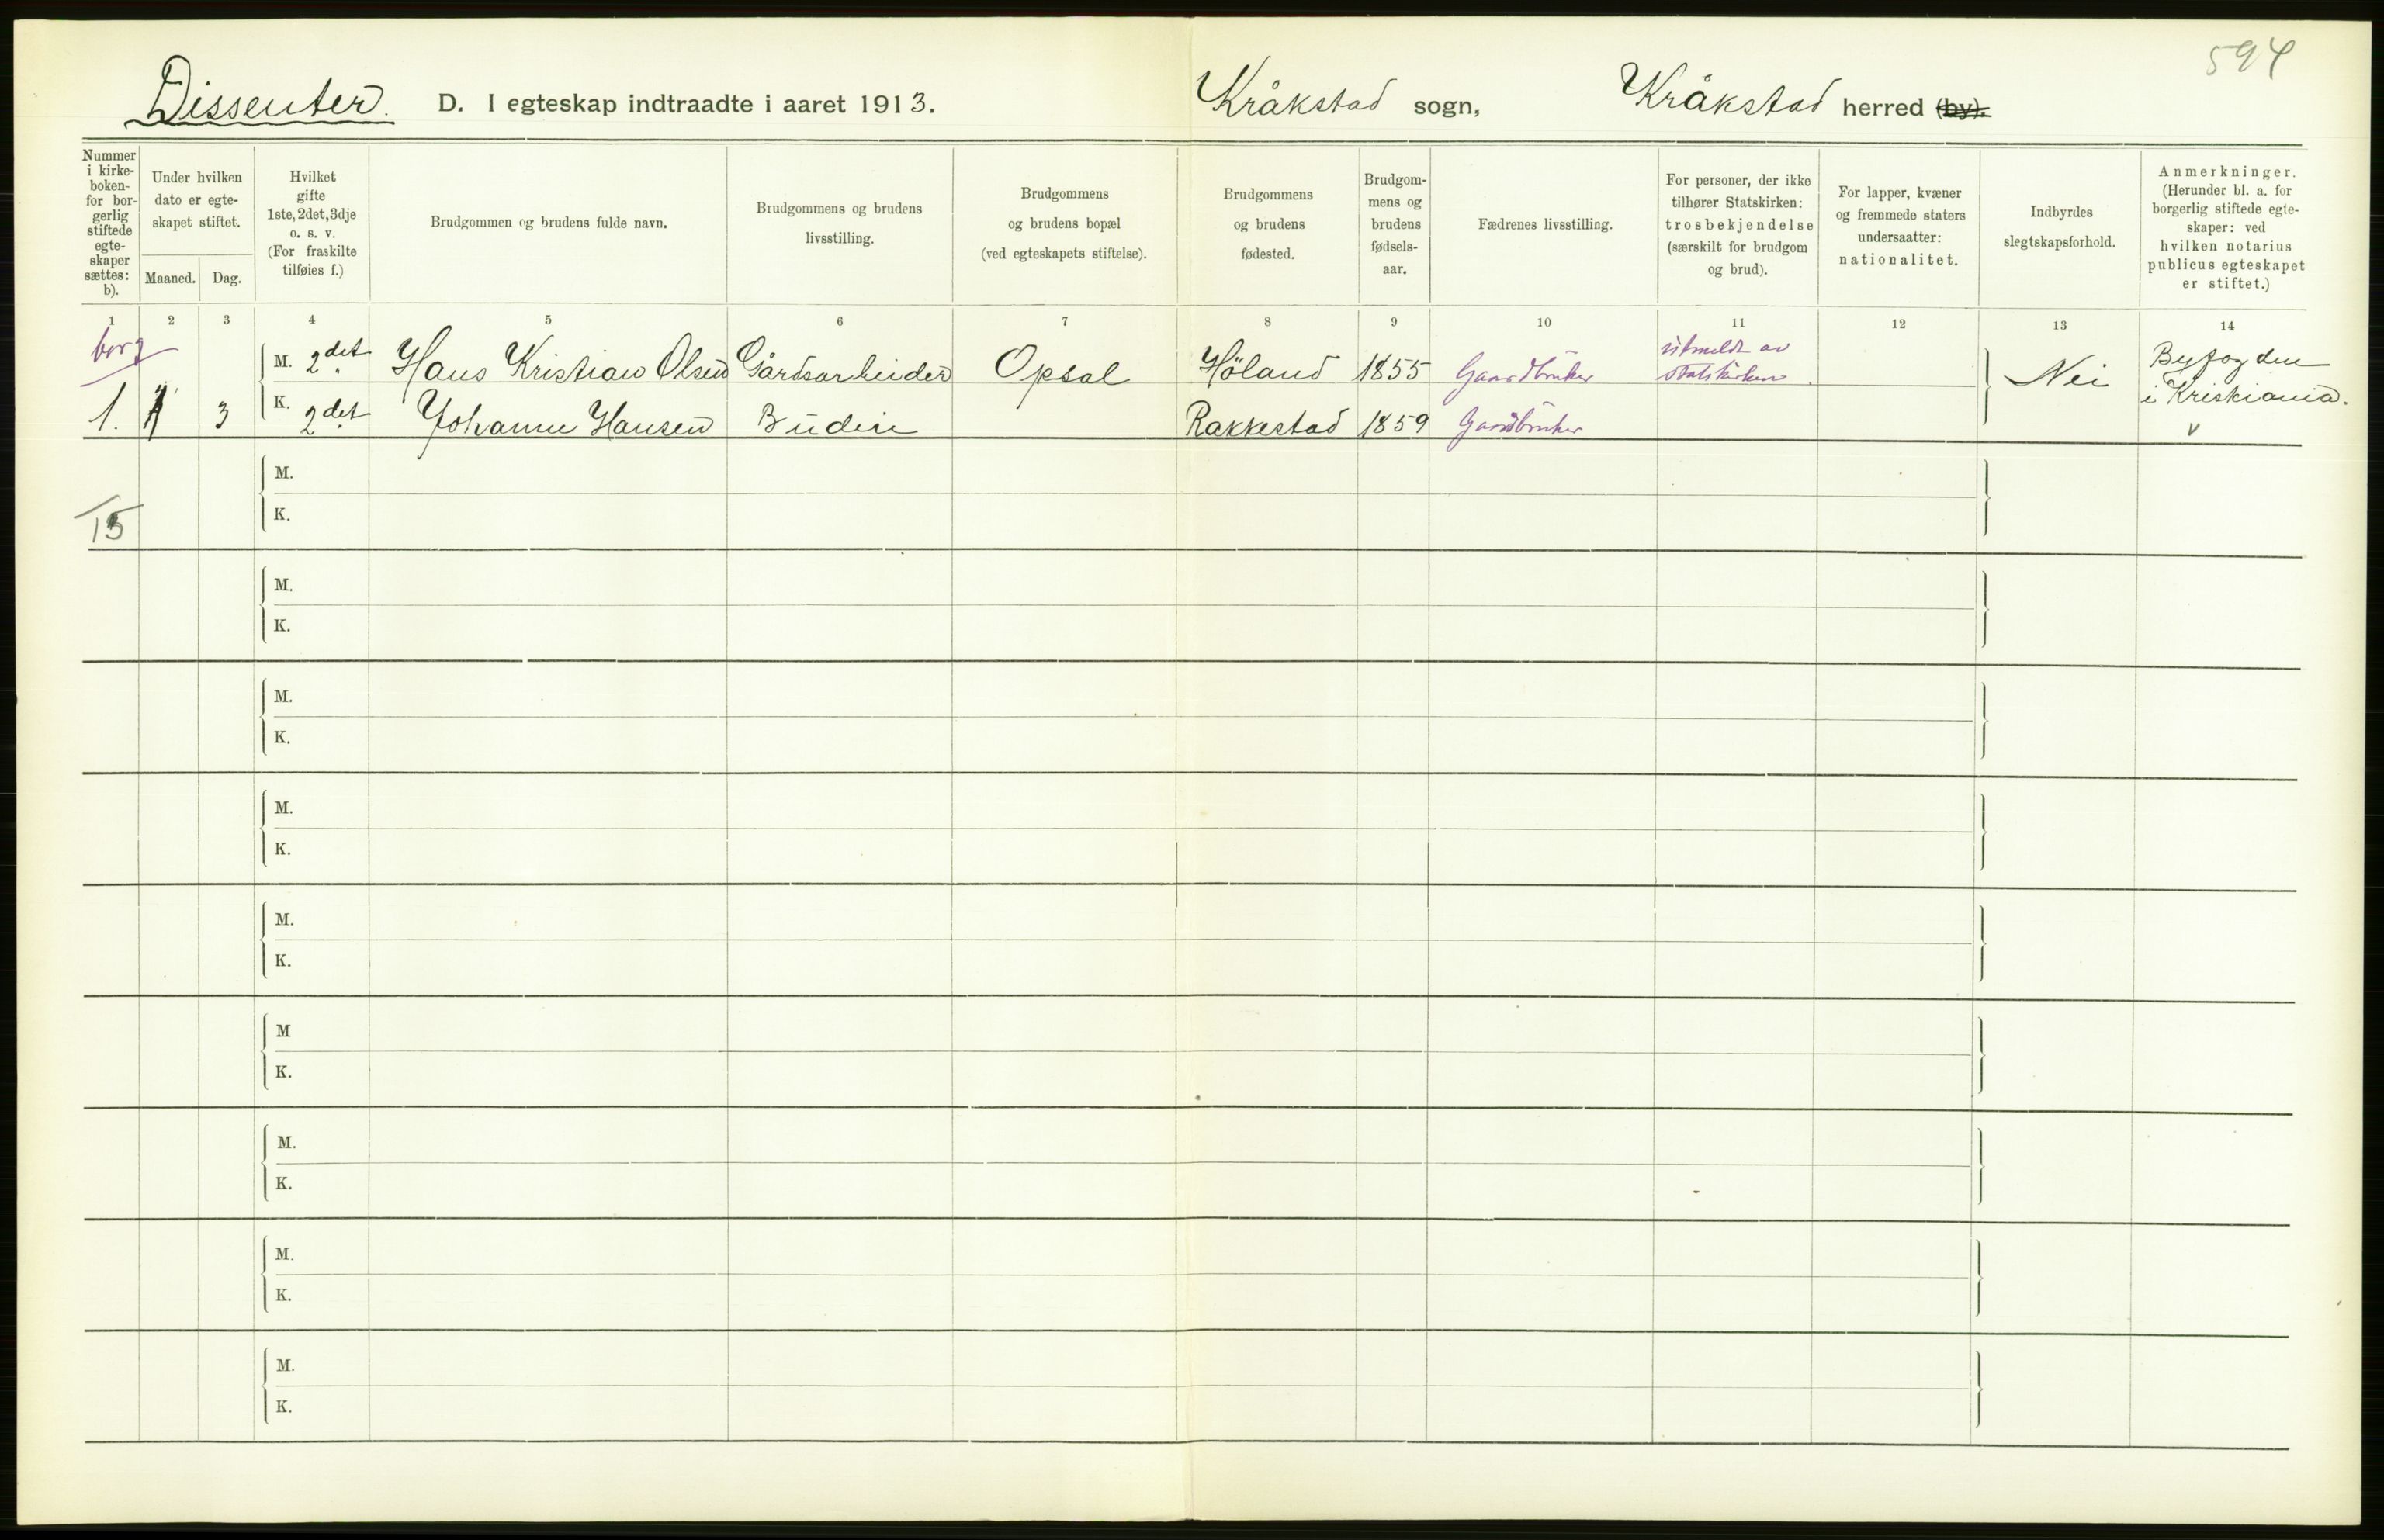 594
Dissenter. D. I egteskap indtraadte i aaret 1913. Kråkstad sogn, Kråkstad herred (by).
Nummer i kirke-boken- for bor-gerlig stiftede egte-skaper sættes: b).
Under hvilken dato er egte-skapet stiftet.
Maaned. Dag.
Hvilket gifte 1ste, 2det, 3dje o. s. v. (For fraskilte tilføies f.)
Brudgommen og brudens fulde navn.
Brudgommens og brudens livsstilling.
Brudgommens og brudens bopæl (ved egteskapets stiftelse).
Brudgommens og brudens fødested.
Brudgom-mens og brudens fødsels-aar.
Fædrenes livsstilling.
For personer, der ikke tilhører Statskirken: trosbekjendelse (særskilt for brudgom og brud).
For lapper, kvæner og fremmede staters undersaatter: nationalitet.
Indbyrdes slegtskapsforhold.
Anmerkninger. (Herunder bl. a. for borgerlig stiftede egte-skaper: ved hvilken notarius publicus egteskapet er stiftet.)
1 2 3 4 5 6 7 8 9 10 11 12 13 14
borg
M. 2det Hans Kristian Olsen Gårdsarbeider Opsal Höland 1855 Gaardbruker utmeldt av statskirken Nei Byfogden i Kristiania.
1. 3 K. 2det Johanne Hansen Budeie Rakkestad 1859 Gaardbruker
M.
15
K.
M.
K.
M.
K.
M.
K.
M.
K.
M
K.
M.
K.
M.
K.
M.
K.